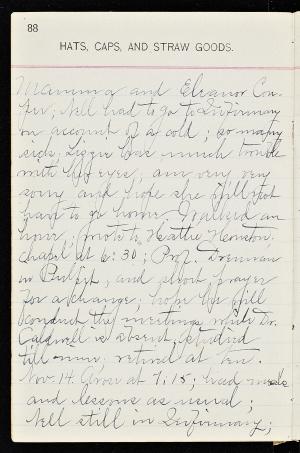 88
HATS, CAPS, AND STRAW GOODS.
Mamma and Eleanor Con-
fer; Nell had to go to Infirmary
on account of a cold; so many
sick; Lizzie has much trouble
with her eyes; am very very
sorry and hope she will not
have to go home. Walked an
hour; wrote to Hattie Houston;
chapel at 6:30; Prof. Drennan
in Pulpit, and short prayer
for a change; hope he will
conduct the meetings while Dr.
Caldwell is absent; studied
till nine; retired at ten.
Nov. 14. Arose at 7:15; had music
and lessons as usual;
Nell still in Infirmary;